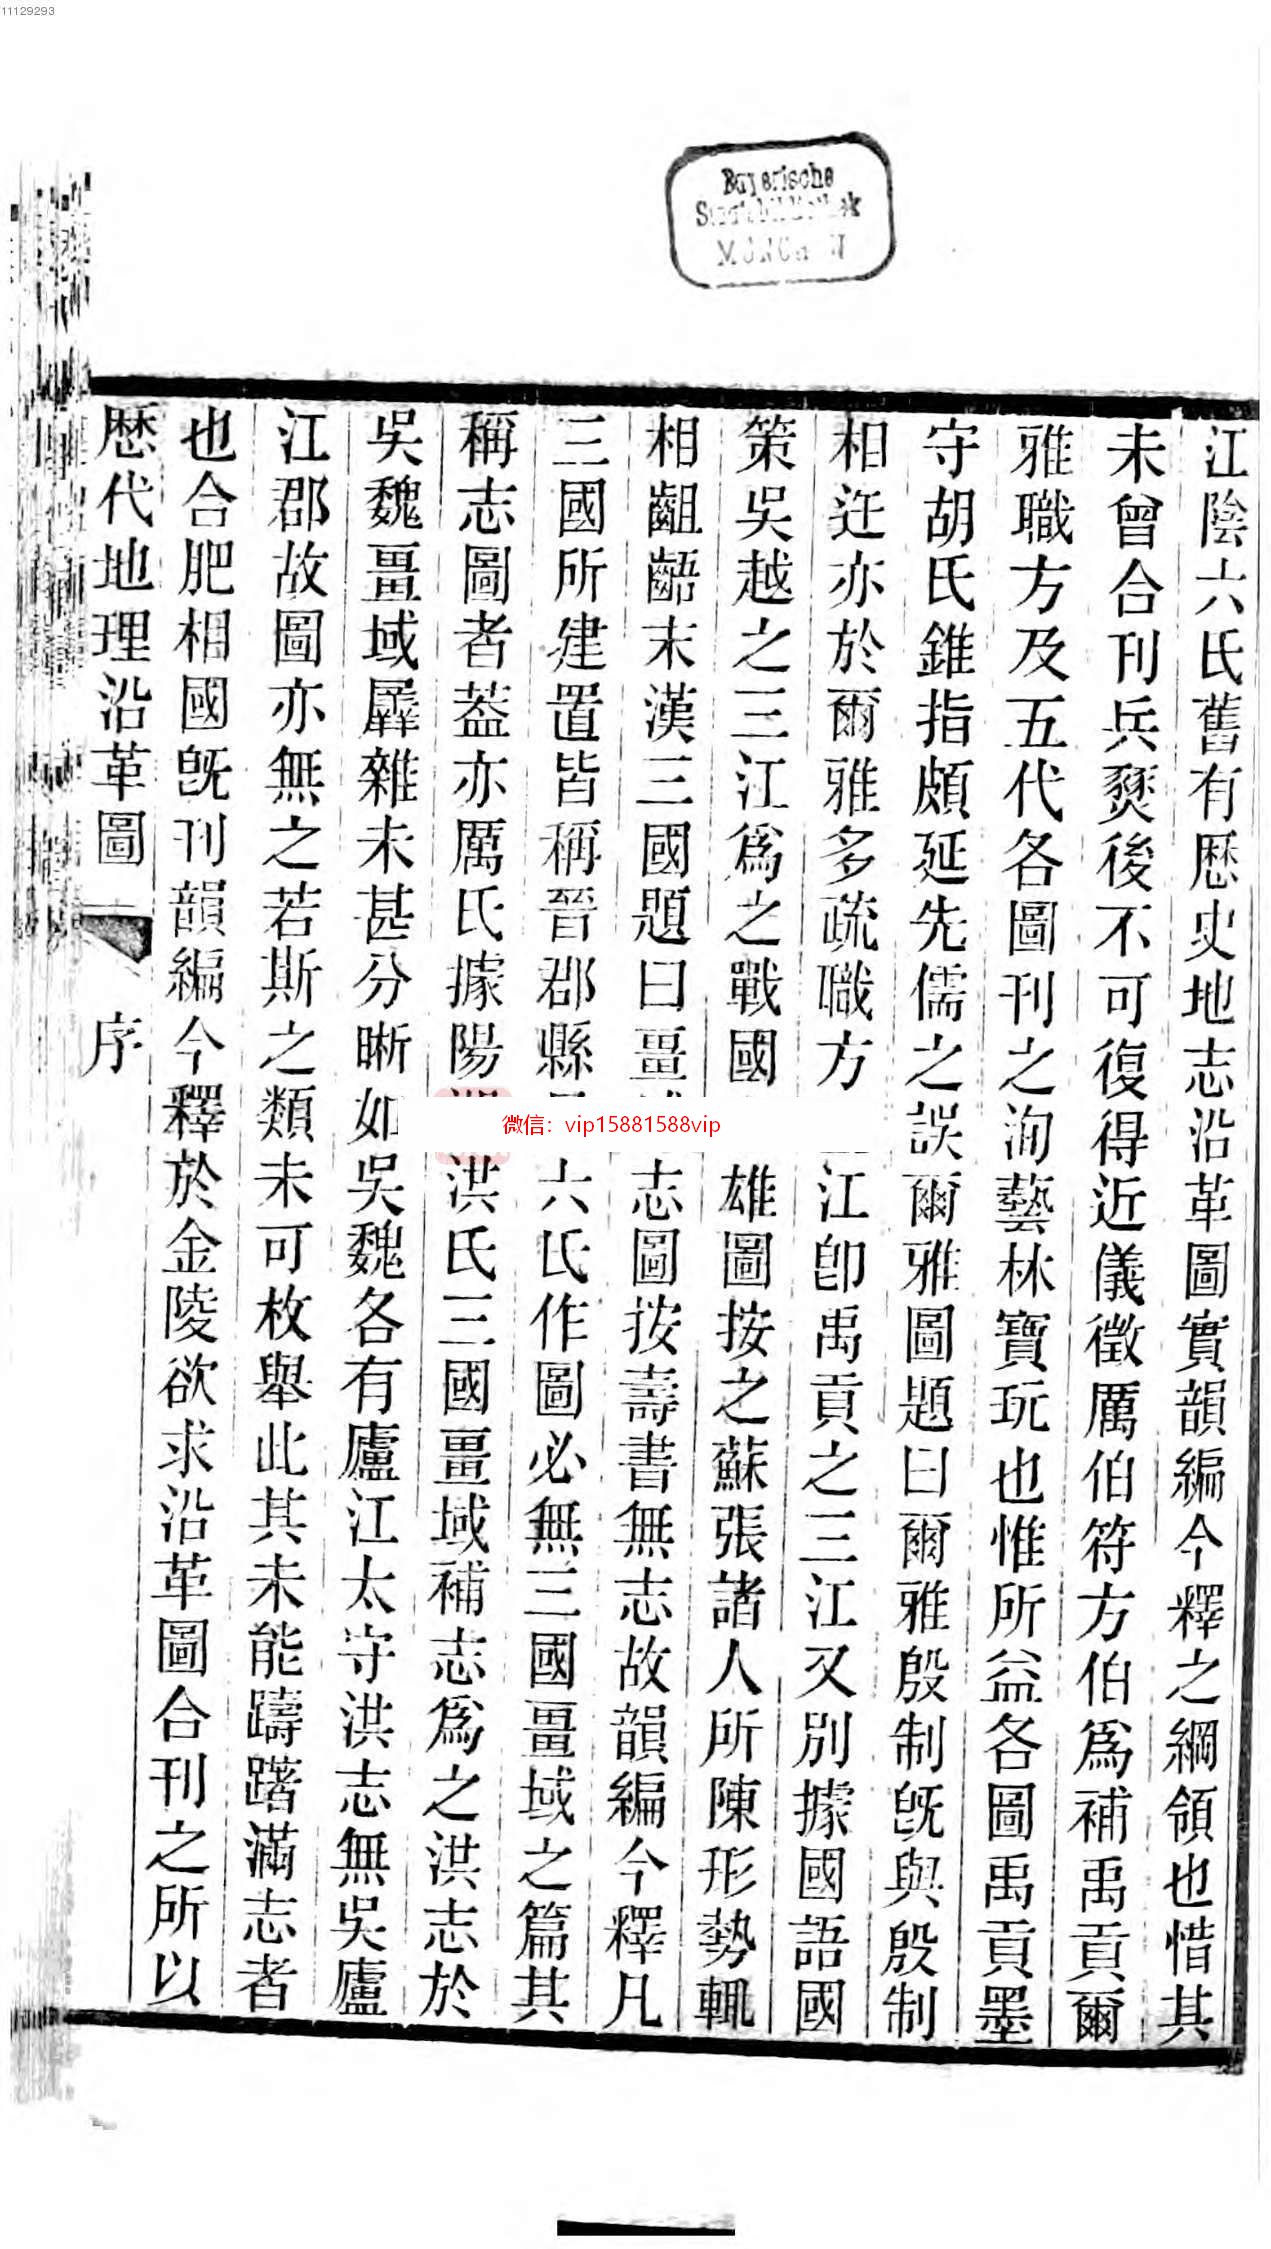 11129293
Bayerische
Staatsbibliothek
MÜNCHEN
江陰六氏舊有歷史地志沿革圖實韻編今釋之綱領也惜其
未曾合刊兵燹後不可復得近儀徵厲伯符方伯爲補禹貢爾
雅職方及五代各圖刊之洵藝林寶玩也惟所益各圖禹貢墨
守胡氏錐指頗延先儒之誤爾雅圖題曰爾雅殷制旣與殷制
相迕亦於爾雅多疏職方江卽禹貢之三江又別據國語國
策吳越之三江爲之戰國雄圖按之蘇張諸人所陳形勢輒
相齟齬末漢三國題曰畺志圖按壽書無志故韻編今釋凡
三國所建置皆稱晉郡縣六氏作圖必無三國畺域之篇其
稱志圖者葢亦厲氏據陽湖洪氏三國畺域補志爲之洪志於
吳魏畺域羼雜未甚分晰如吳魏各有廬江太守洪志無吳廬
江郡故圖亦無之若斯之類未可枚舉此其未能躊躇滿志者
也合肥相國旣刊韻編今釋於金陵欲求沿革圖合刊之所以
歷代地理沿革圖 序
微信：vip15881588vip